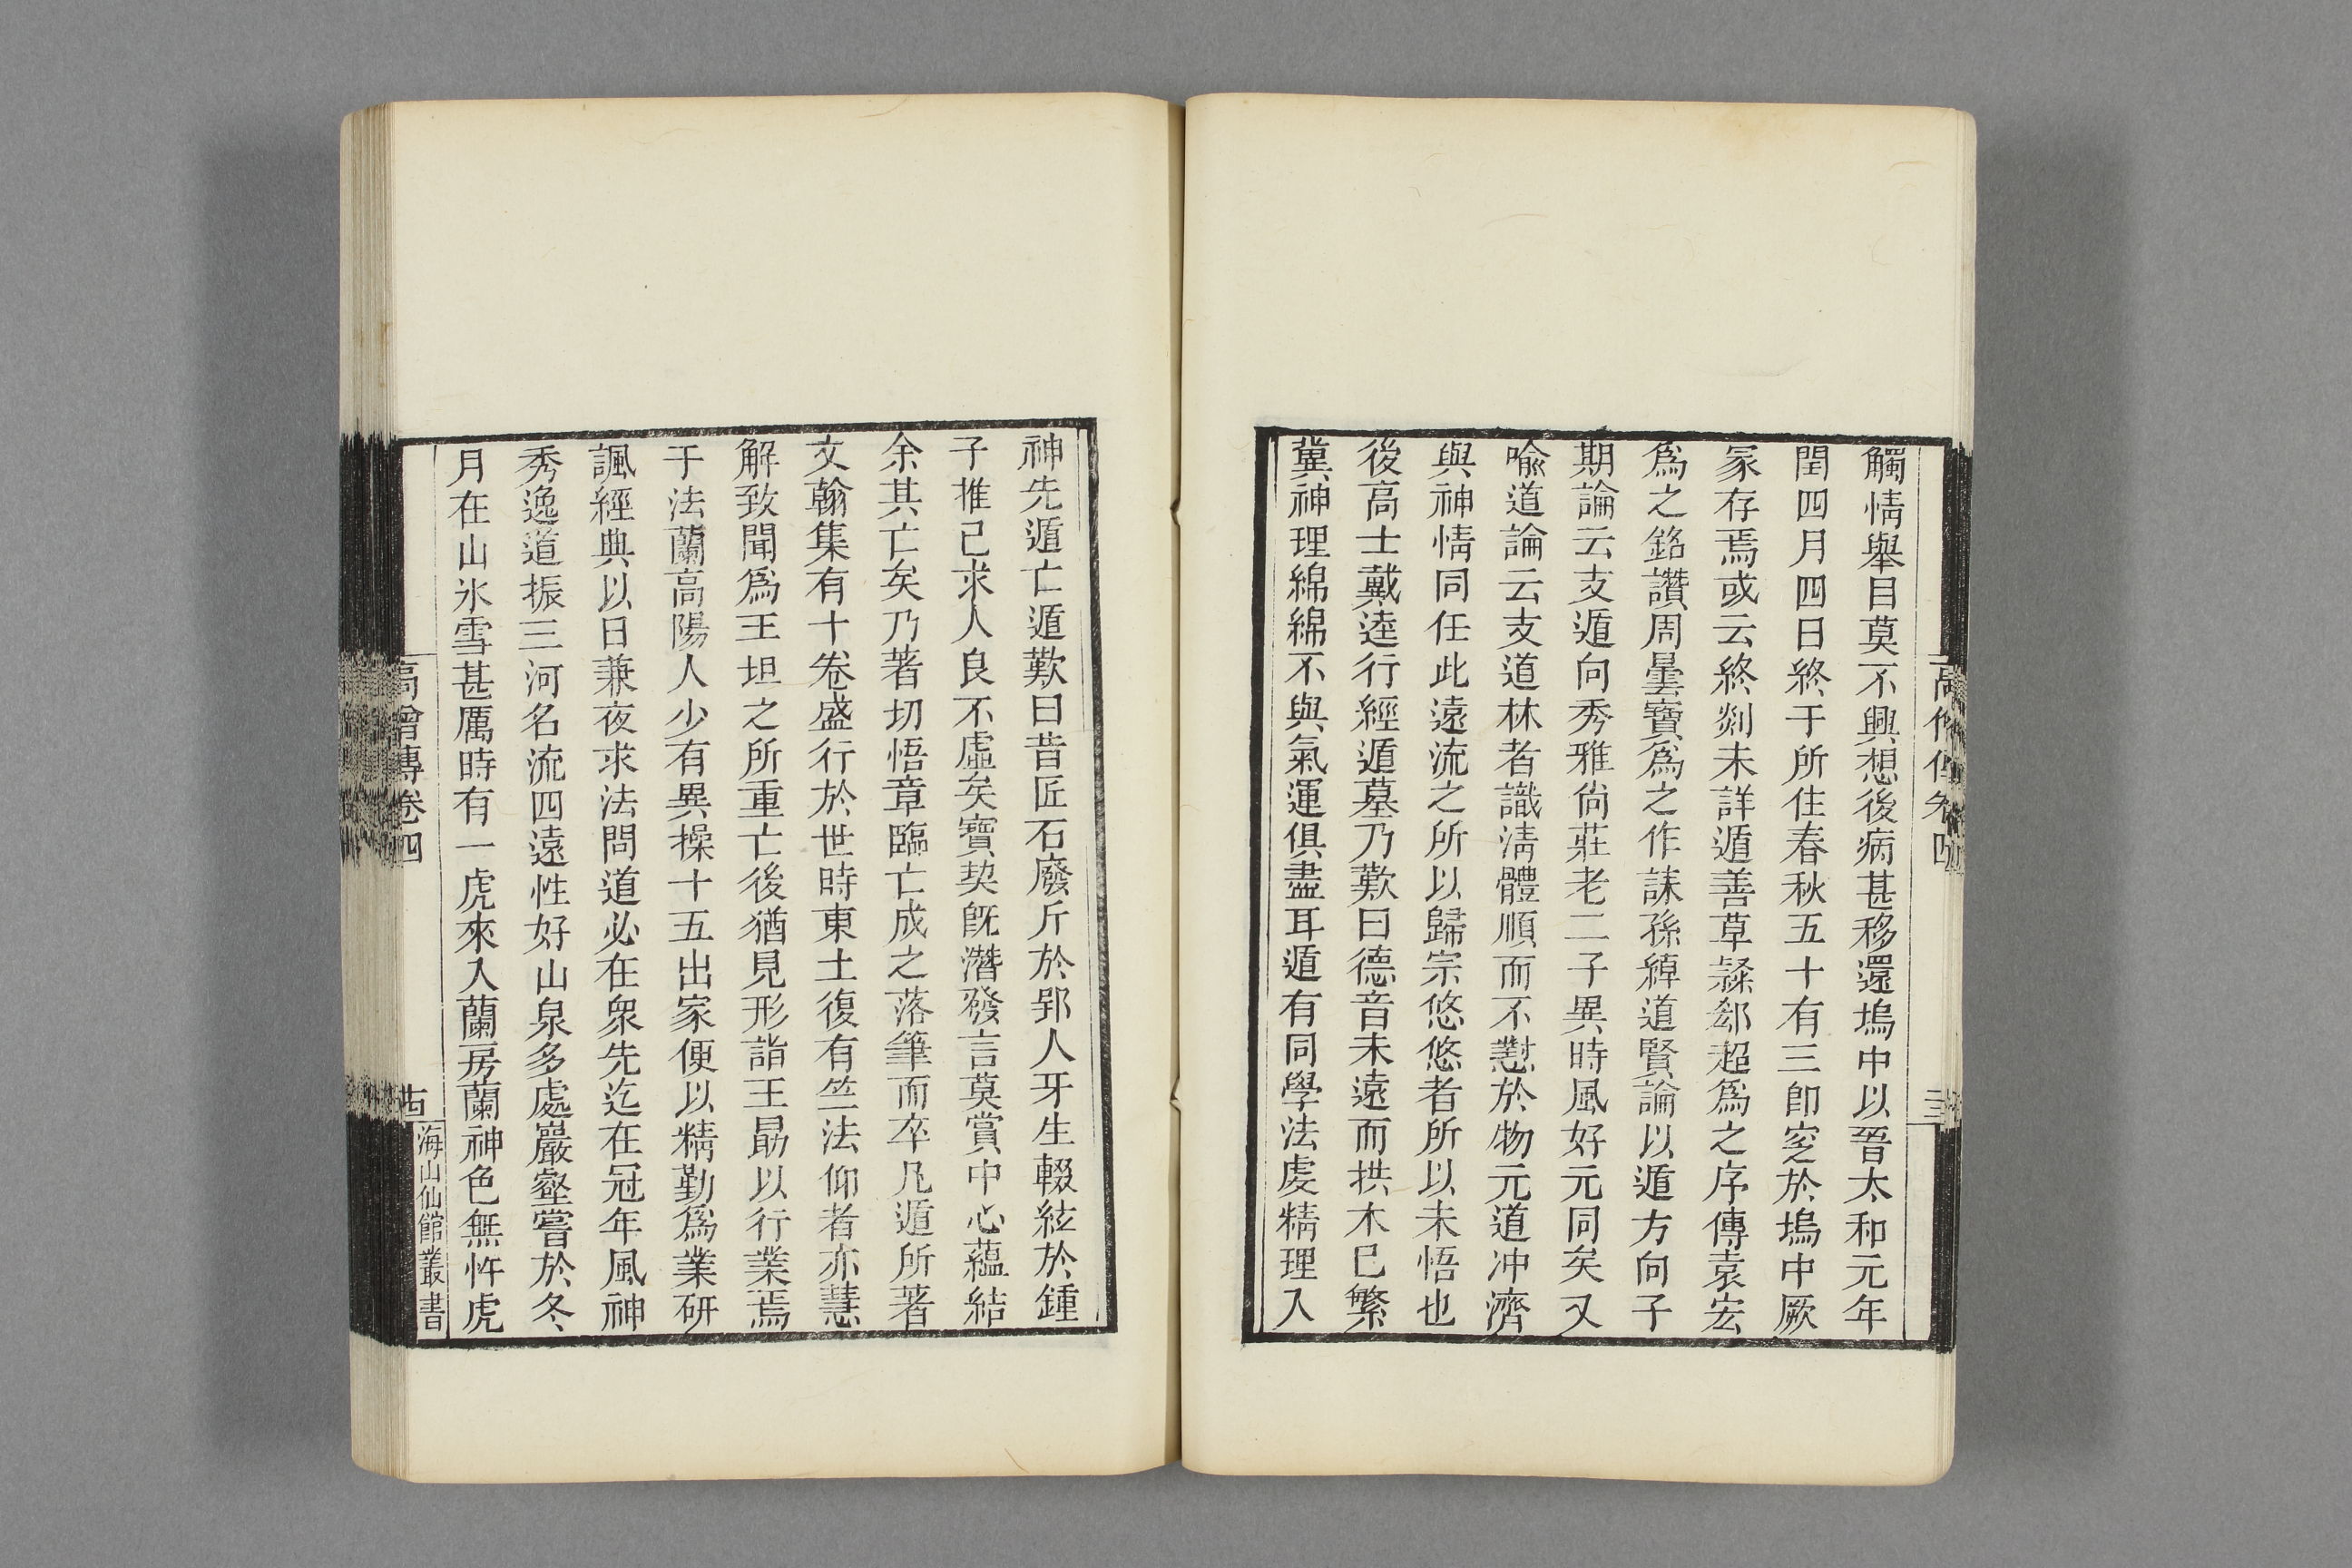 觸情舉目莫不興想後病甚移還塢中以晉太和元年
閏四月四日終于所住春秋五十有三卽窆於塢中厥
冢存焉或云終剡未詳遁善草隸郄超爲之序傳袁宏
爲之銘讚周曇寶爲之作誄孫綽道賢論以遁方向子
期論云支遁向秀雅尙莊老二子異時風好元同矣又
喩道論云支道林者識淸體順而不懟於物元道冲濟
與神情同任此遠流之所以歸宗悠悠者所以未悟也
後高士戴逵行經遁墓乃歎曰德音未遠而拱木巳繁
冀神理綿綿不與氣運俱盡耳遁有同學法虔精理入
神先遁亡遁歎曰昔匠石廢斤於郢人牙生輟絃於鍾
子推己求人良不虛矣寶契旣潛發言莫賞中心蘊結
余其亡矣乃著切悟章臨亡成之落筆而卒凡遁所著
文翰集有十卷盛行於世時東土復有竺法仰者亦慧
解致聞爲王坦之所重亡後猶見形詣王勗以行業焉
于法蘭高陽人少有異操十五出家便以精勤爲業研
諷經典以日兼夜求法問道必在衆先迄在冠年風神
秀逸道振三河名流四遠性好山泉多處巖壑嘗於冬
月在山氷雪甚厲時有一虎來入蘭房蘭神色無忤虎
高僧傳卷四
海山仙館叢書